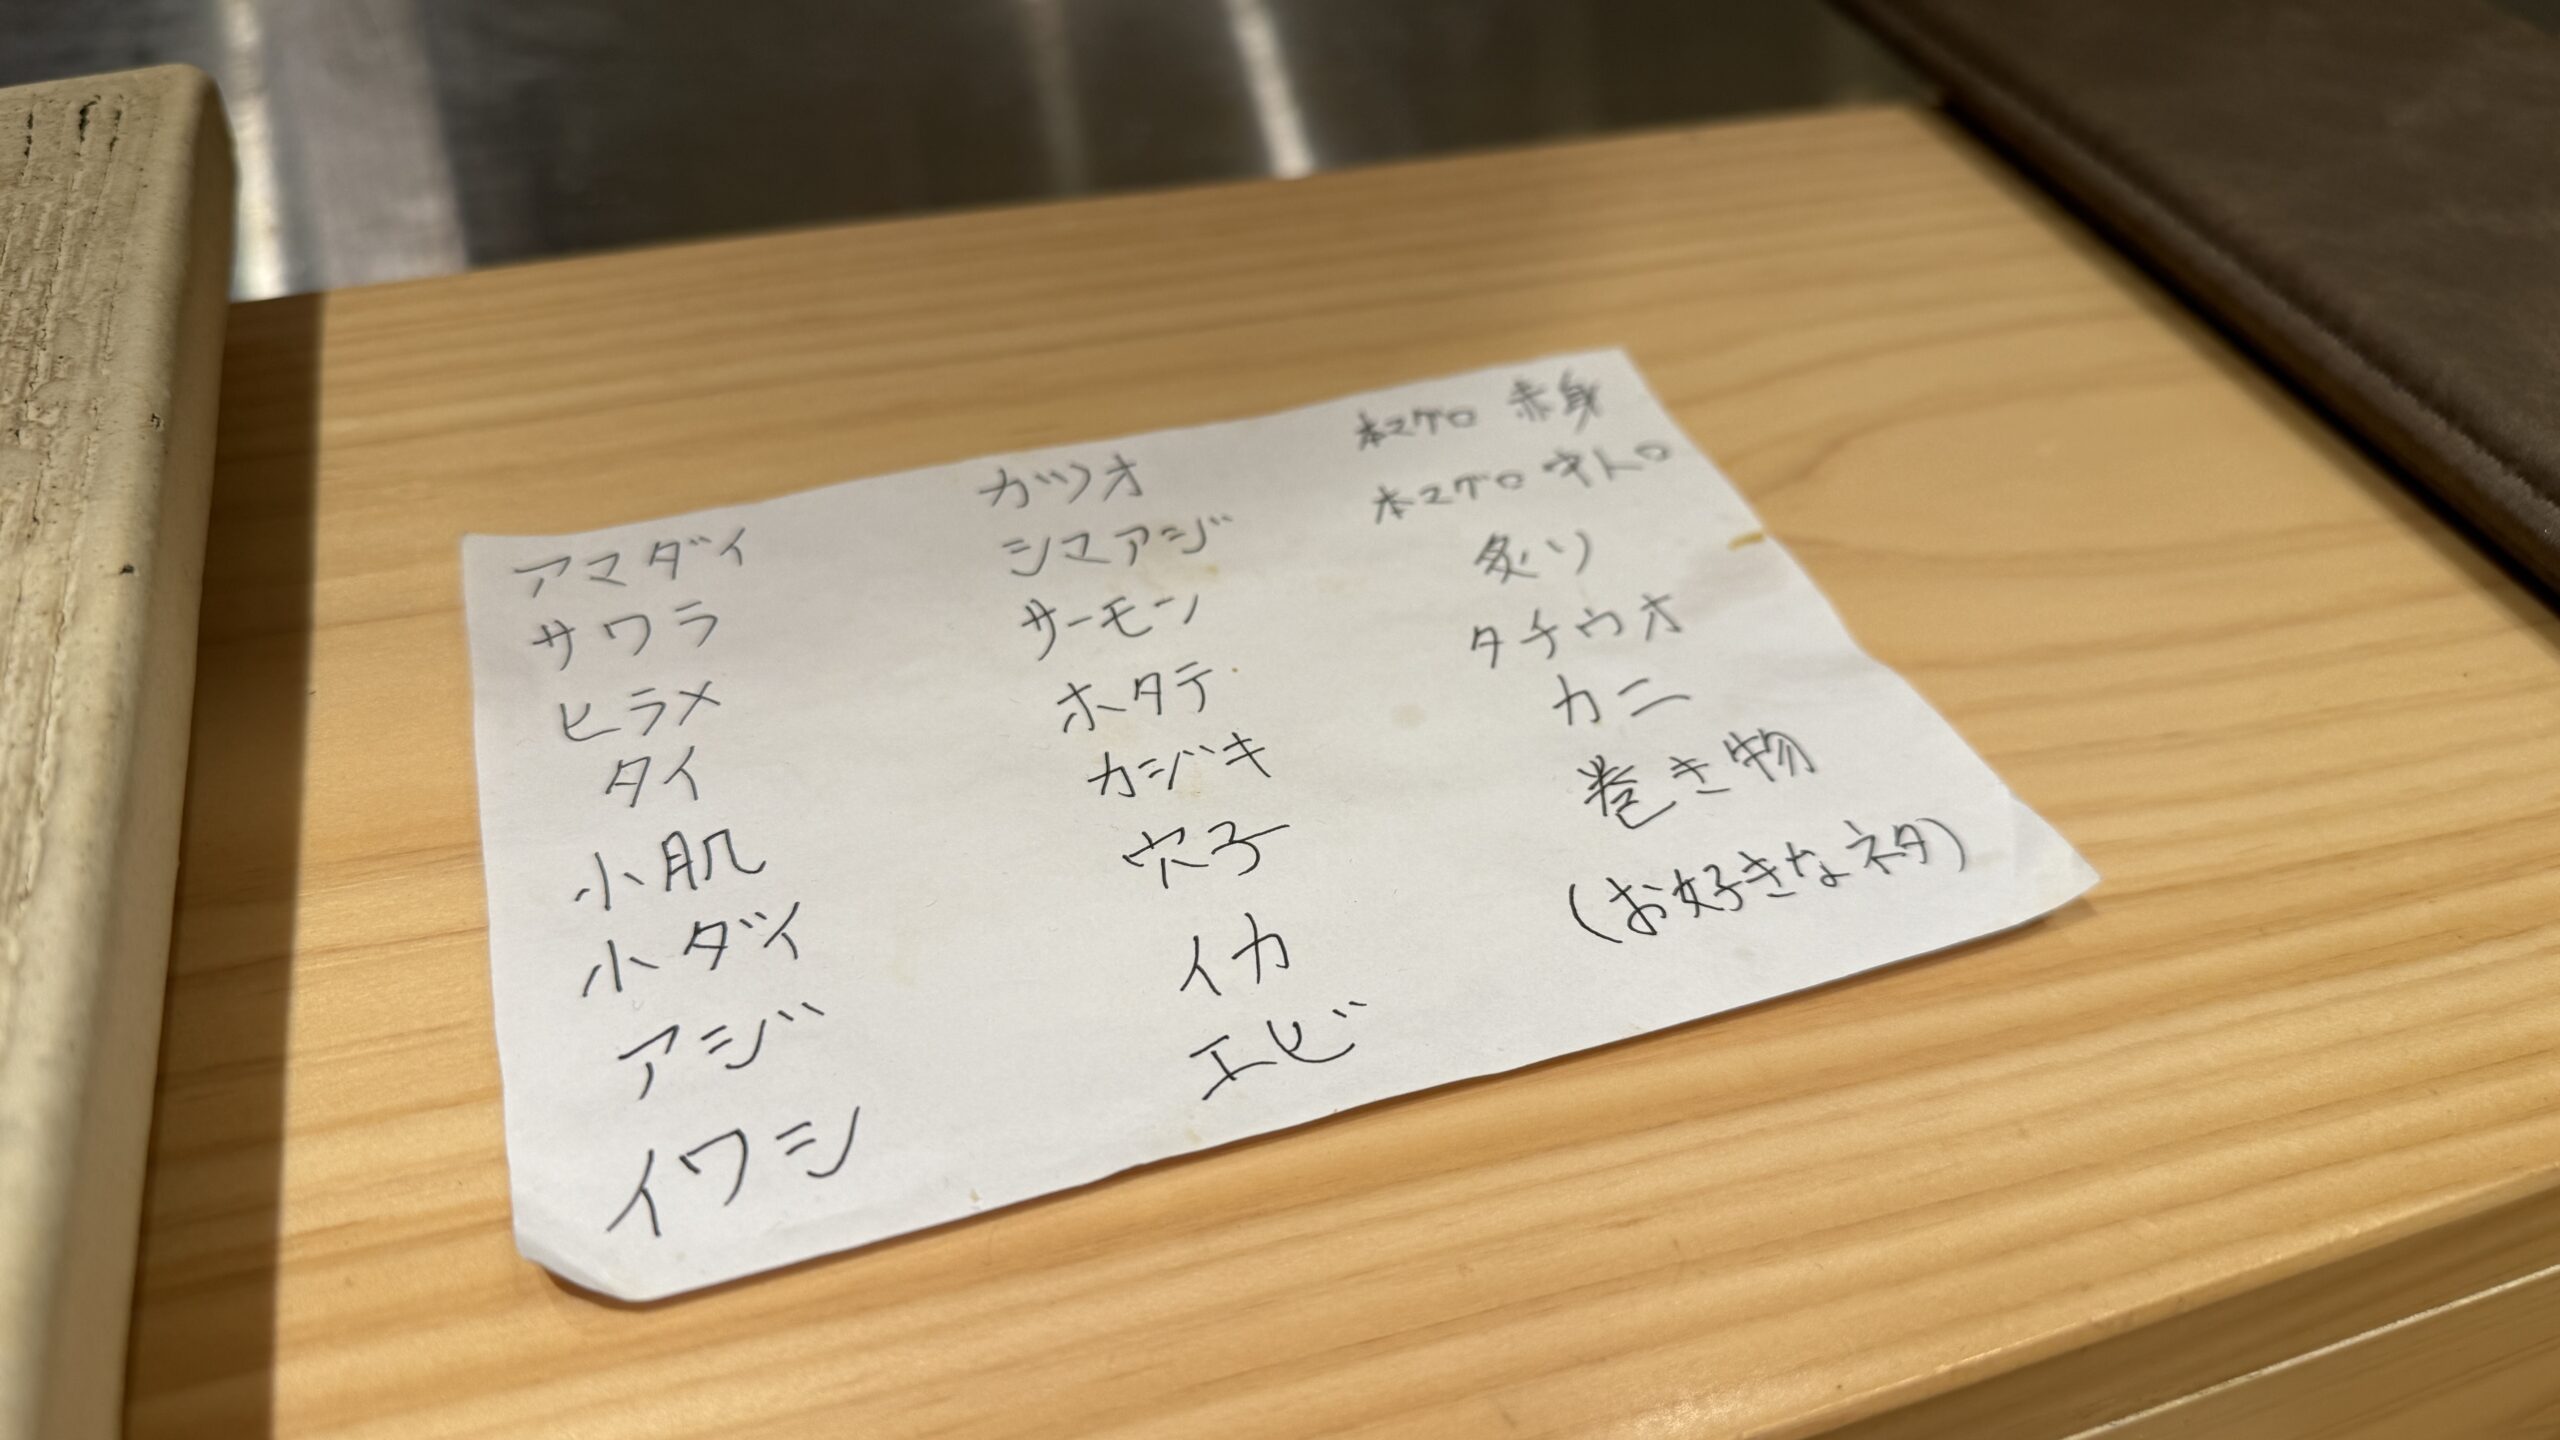 アマダイ
サワラ
ヒラメ
タイ
小肌
小ダイ
アジ
イワシ
カツオ
シマアジ
サーモン
ホタテ
カジキ
穴子
イカ
エビ
本マグロ 赤身
本マグロ 中トロ
炙り
タチウオ
カニ
巻き物
(お好きなネタ)